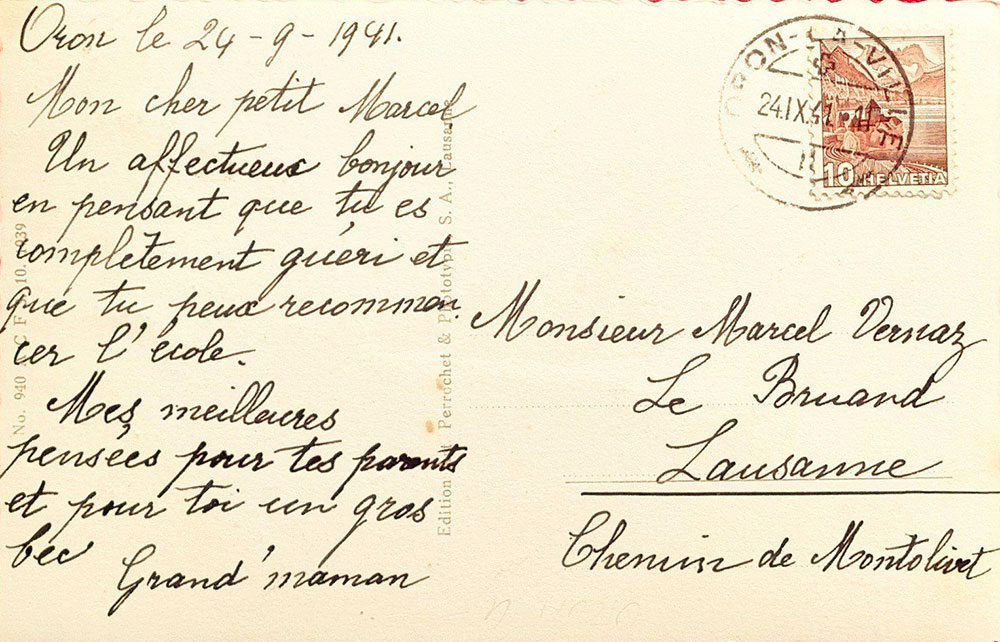 Oron le 24-9-1941.
Mon cher petit Marcel
Un affectueux bonjour
en pensant que tu es
complètement guéri et
que tu peux recommen
cer l'école.
Mes meilleures
pensées pour tes parents
et pour toi un gros
bec
Grand'maman
No. 940 10. 1939
Edition Perrochet & Phototypie S. A., Lausanne
ORON-LA-VILLE
24.IX.41.-11
10 HELVETIA
Monsieur Marcel Vernaz
Le Bruand
Lausanne
Chemin de Montolivet